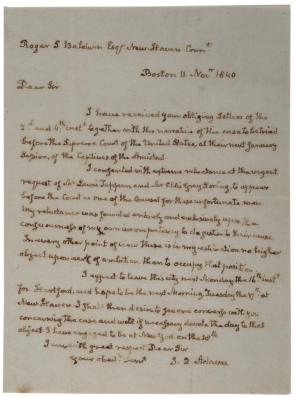 Roger S. Baldwin Esqr New Haven Connt
Boston 11 Novr 1840
Dear Sir
I have received your obliging Letters of the
2d and 4th inst together with the narrative of the case to be tried
before the Supreme Court of the United States, at their next January
Session, of the Captives of the Amistad.
I consented with extreme reluctance at the urgent
request of Mr Lewis Tappan and Mr Ellis Gray Loring, to appear
before the Court as one of the Counsel for these unfortunate men
My reluctance was founded entirely and exclusively upon the
consciousness of my own incompetency to do justice to their cause
In every other point of view there is in my estimation no higher
object upon earth of ambition than to occupy that position
I expect to leave this city next Monday the 16th inst
for Hartford, and hope to be the next Morning, Tuesday the 17th at
New Haven I shall then desire to see and converse with you
concerning the case and will if necessary devote the day to that
object I have engaged to be at New York on the 18th
I am with great respect Dear Sir
your obedt Servt J. Q. Adams